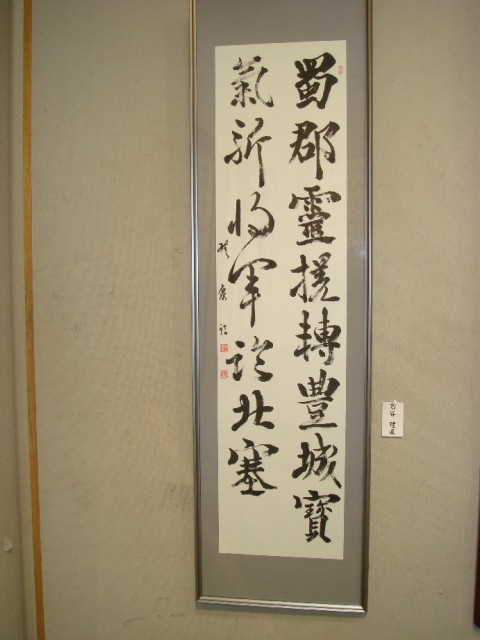 蜀郡靈槎轉豐城寶
氣新將軍臨北塞